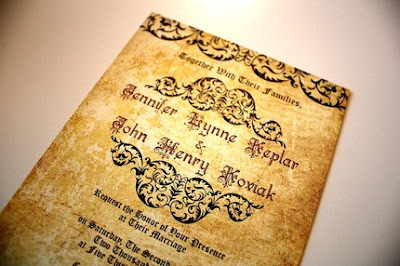 Together With Their Families,
Jennifer Lynne Keplar
&
John Henry Koviak
Request the Honor of Your Presence
at Their Marriage
on Saturday, The Second
Two Thousand
at Five